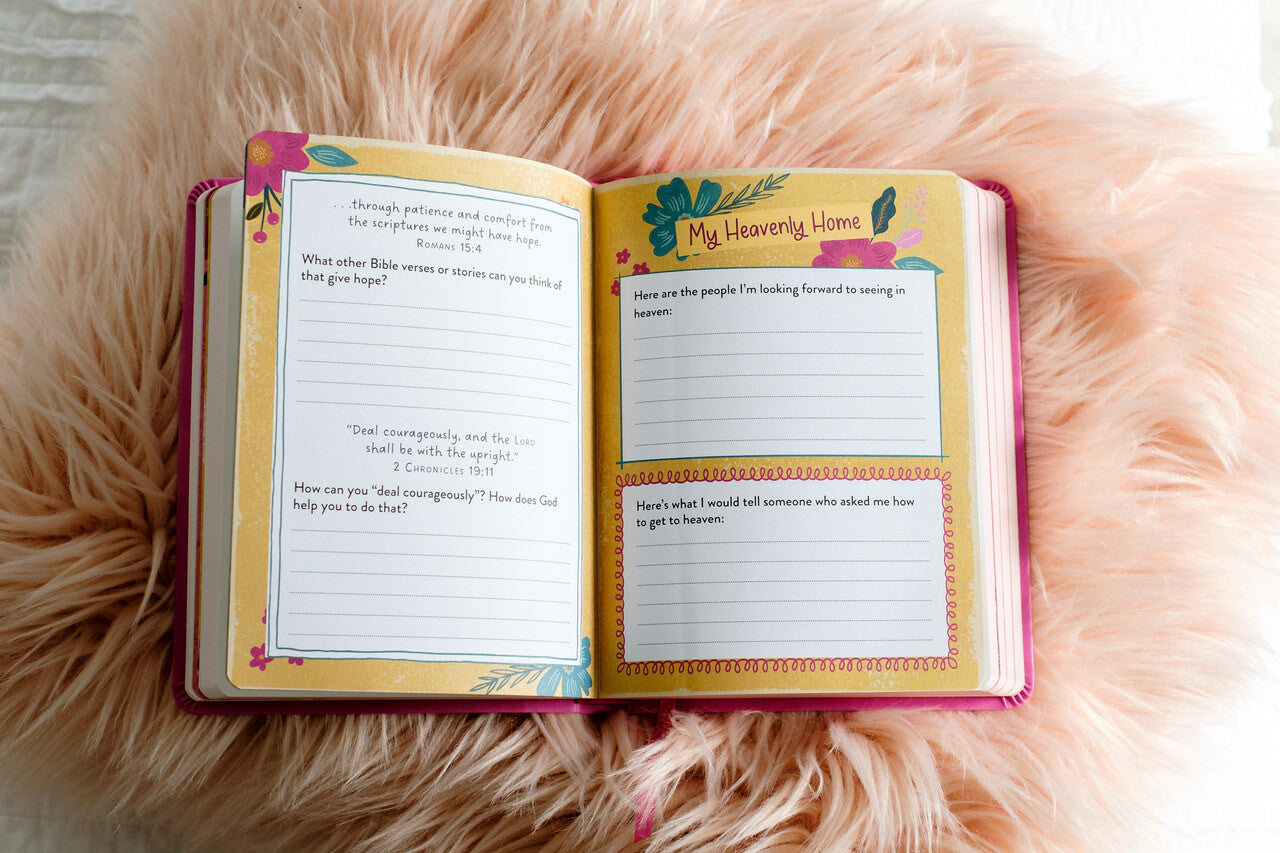 . . .through patience and comfort from
the scriptures we might have hope.
Romans 15:4
What other Bible verses or stories can you think of
that give hope?
"Deal courageously, and the Lord
shall be with the upright."
2 Chronicles 19:11
How can you "deal courageously"? How does God
help you to do that?
My Heavenly Home
Here are the people I'm looking forward to seeing in
heaven:
Here's what I would tell someone who asked me how
to get to heaven: